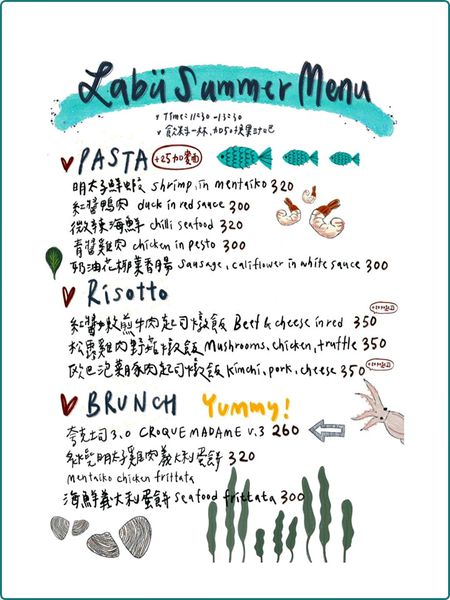 Labü Summer Menu
Time: 11:30-13:30
飲料一杯, 加50換果汁吧
PASTA +25加麵
明太子鮮蝦 shrimp, in mentaiko 320
紅醬鴨肉 duck in red sauce 300
微辣海鮮 chilli seafood 320
青醬雞肉 chicken in pesto 300
奶油花椰菜香腸 Sausage, califlower in white sauce 300
Risotto
紅醬嫩煎牛肉起司燉飯 Beef & cheese in red 350
松露雞肉野菇燉飯 Mushrooms, chicken, truffle 350
歐巴泡菜豚肉起司燉飯 kimchi, pork, cheese 350
BRUNCH Yummy!
夸克土司 3.0 CROQUE MADAME V.3 260
明太子雞肉義大利蛋餅 320
mentaiko chicken frittata
海鮮義大利蛋餅 seafood frittata 300